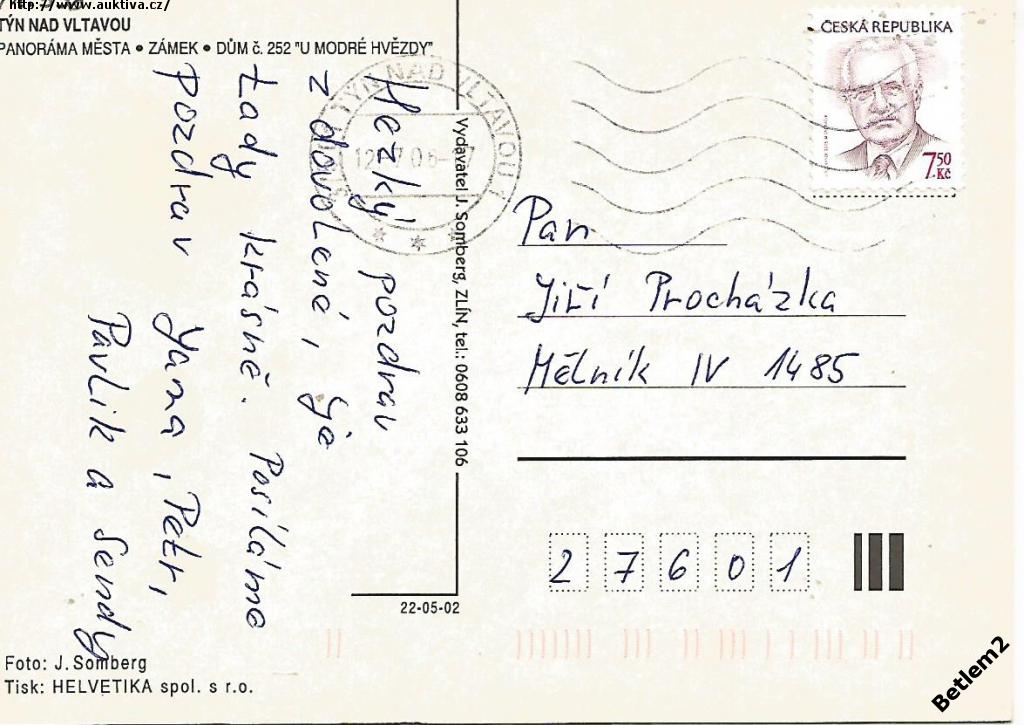 http://www.auktiva.cz/
TÝN NAD VLTAVOU
PANORÁMA MĚSTA • ZÁMEK • DŮM č. 252 "U MODRÉ HVĚZDY"
Hezký pozdrav
z dovolené, je
tady krásně. Posíláme
pozdrav Yana, Petr,
Pavlik a Sendy
Vydavatel J. Somberg, ZLÍN, tel.: 0608 633 106
TÝN NAD VLTAVOU 1
ČESKÁ REPUBLIKA
7,50
Kč
Pan
Jiří Procházka
Mělník IV 1485
27601
22-05-02
Foto: J. Somberg
Tisk: HELVETIKA spol. s r.o.
Betlem2